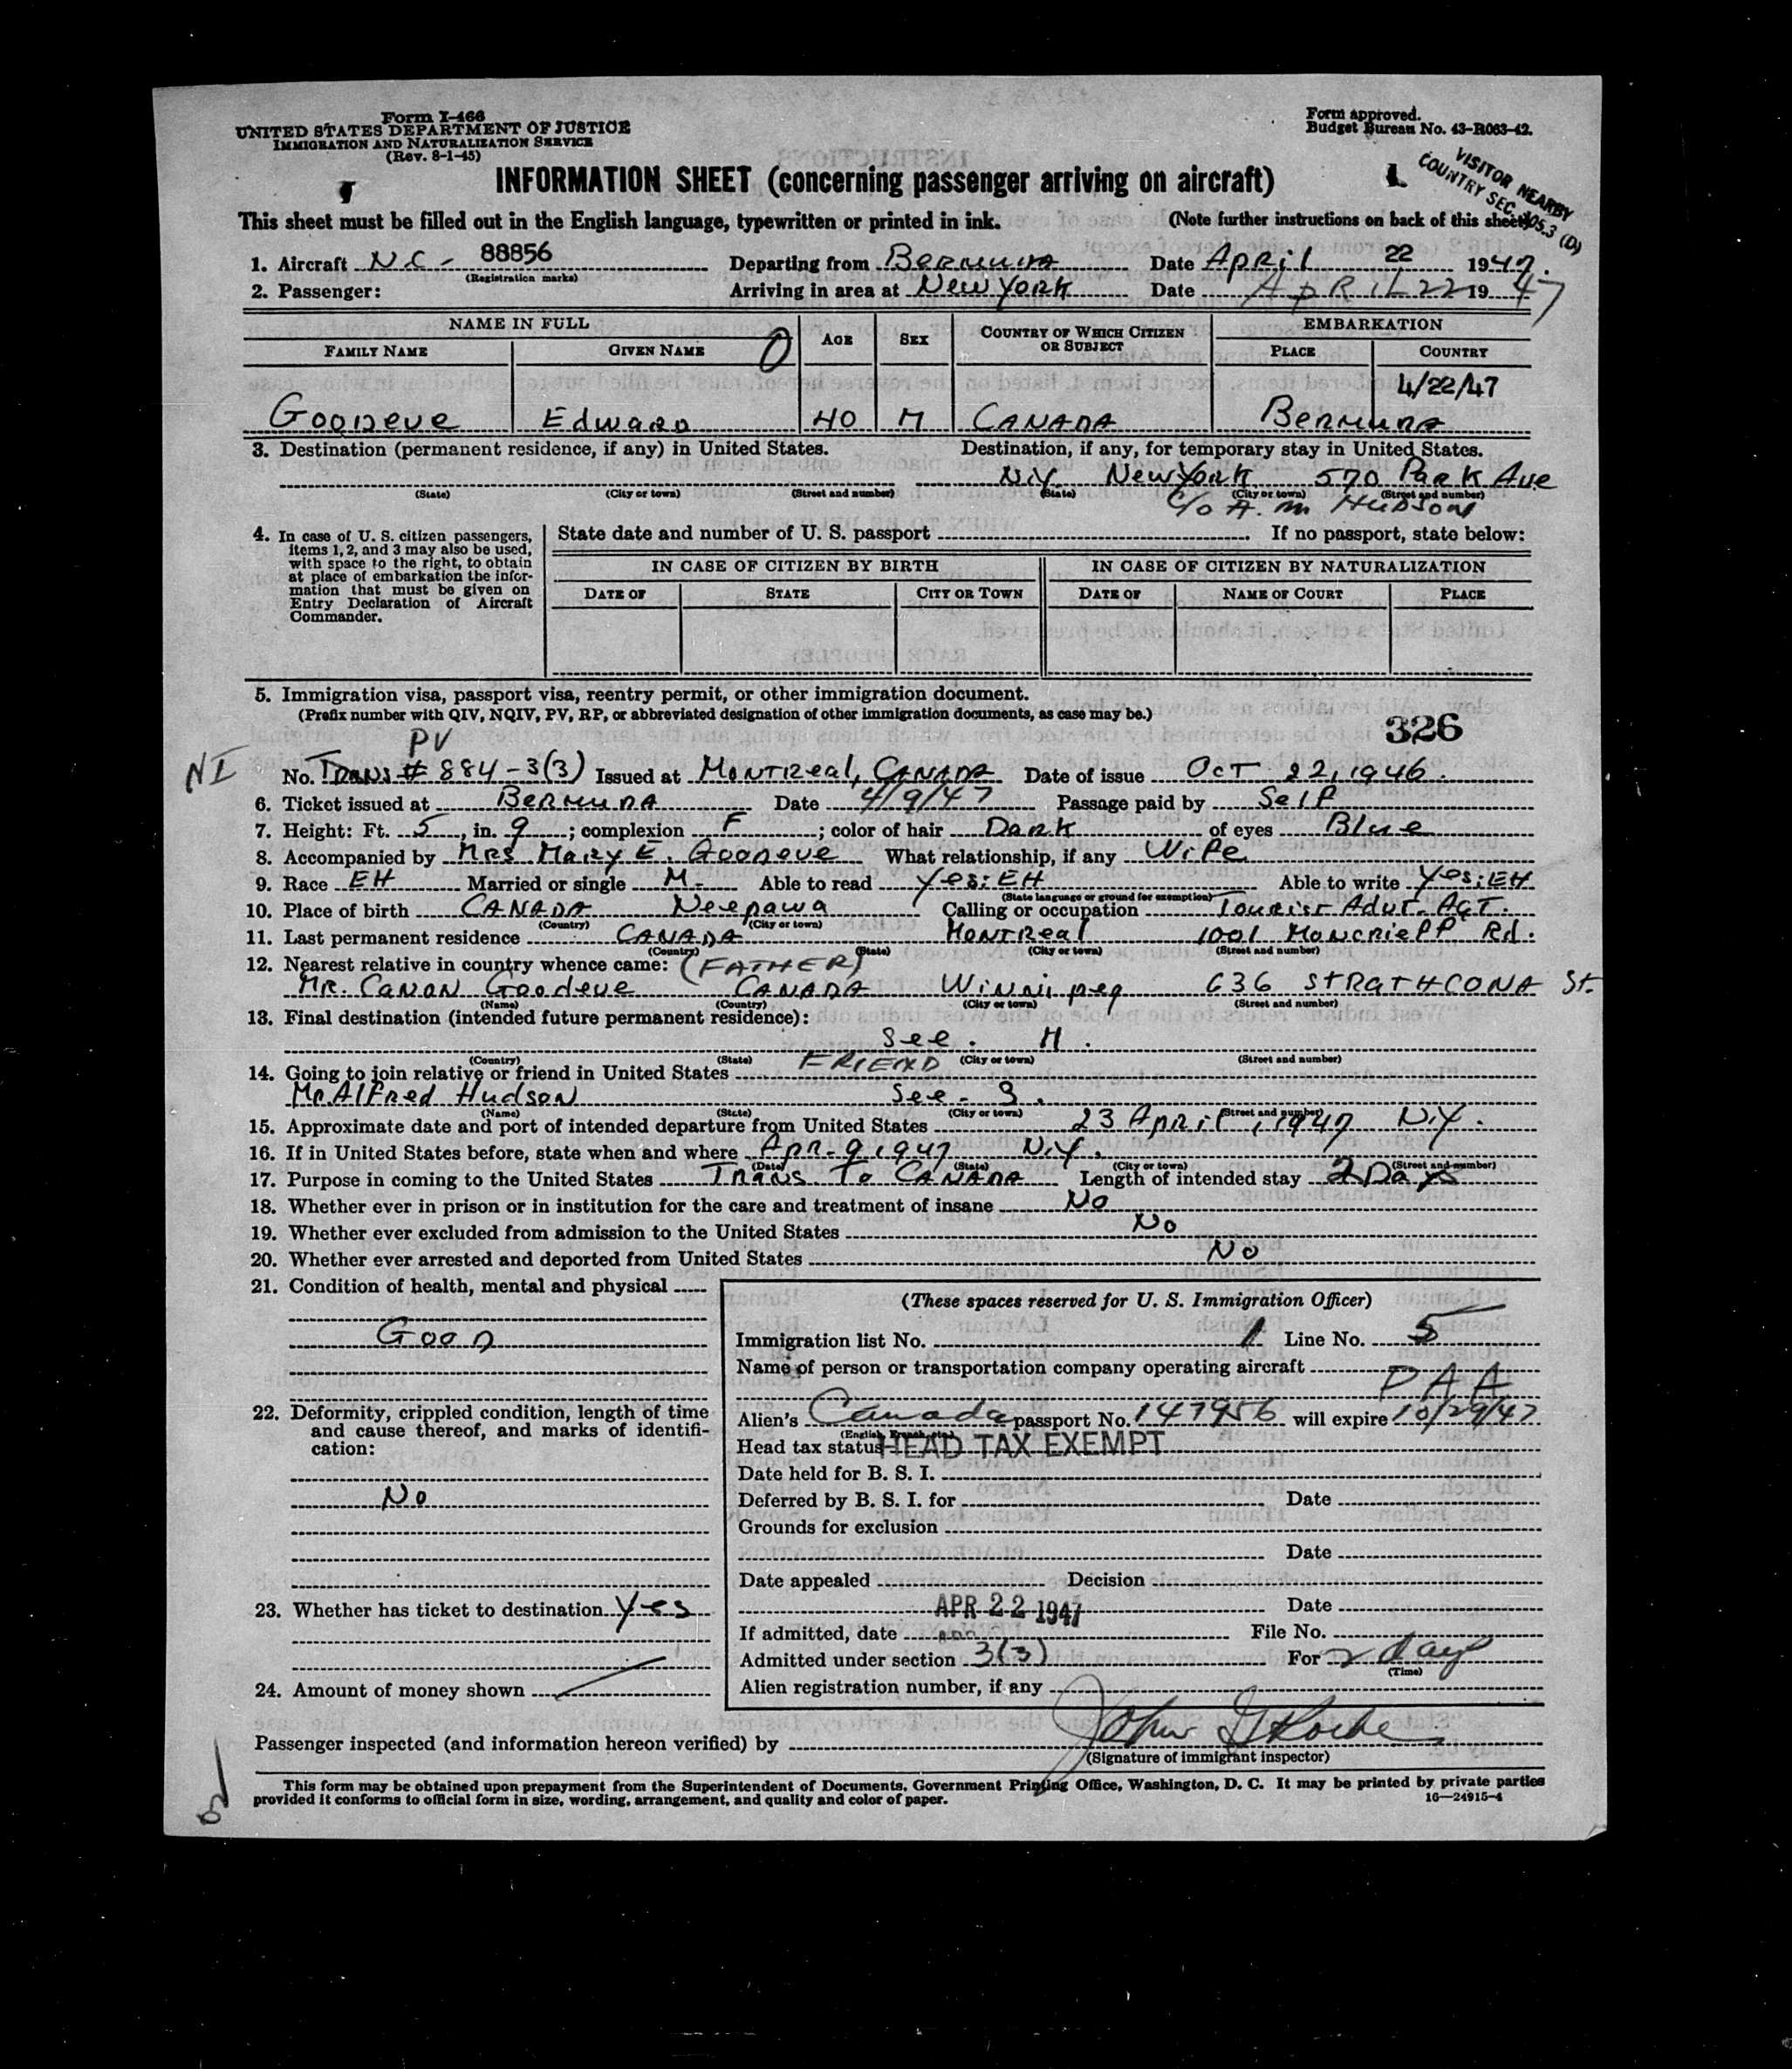 Form I-466
UNITED STATES DEPARTMENT OF JUSTICE
IMMIGRATION AND NATURALIZATION SERVICE
(Rev. 8-1-45)
Form approved.
Budget Bureau No. 43-R063-42.
VISITOR NEARBY
COUNTRY SEC. 105.3 (D)
INFORMATION SHEET (concerning passenger arriving on aircraft)
This sheet must be filled out in the English language, typewritten or printed in ink. (Note further instructions on back of this sheet)
1. Aircraft N.C- 88856 Departing from Bermuda Date April 22 1947.
(Registration marks)
2. Passenger: Arriving in area at New York Date April 22 1947
NAME IN FULL AGE SEX COUNTRY OF WHICH CITIZEN OR SUBJECT EMBARKATION
FAMILY NAME GIVEN NAME PLACE COUNTRY
4/22/47
Goodeve Edward 40 M CANADA Bermuda
3. Destination (permanent residence, if any) in United States. Destination, if any, for temporary stay in United States.
N.Y. New York 570 Park Ave
(State) (City or town) (Street and number) (State) (City or town) (Street and number)
c/o A. M. Hudson
4. In case of U. S. citizen passengers, items 1, 2, and 3 may also be used, with space to the right, to obtain at place of embarkation the information that must be given on Entry Declaration of Aircraft Commander.
State date and number of U. S. passport If no passport, state below:
IN CASE OF CITIZEN BY BIRTH IN CASE OF CITIZEN BY NATURALIZATION
DATE OF STATE CITY OR TOWN DATE OF NAME OF COURT PLACE
5. Immigration visa, passport visa, reentry permit, or other immigration document.
(Prefix number with QIV, NQIV, PV, RP, or abbreviated designation of other immigration documents, as case may be.)
326
PV
NI
No. Trans # 884-3(3) Issued at Montreal, CANADA Date of issue Oct 22, 1946.
6. Ticket issued at Bermuda Date 4/9/47 Passage paid by Self
7. Height: Ft. 5, in. 9; complexion F; color of hair Dark of eyes Blue
8. Accompanied by Mrs Mary E. Goodeve What relationship, if any Wife
9. Race EH Married or single M. Able to read Yes: EH Able to write Yes: EH
(State language or ground for exemption)
10. Place of birth CANADA Neepawa Calling or occupation Tourist Advt. AGT.
(Country) (City or town)
11. Last permanent residence CANADA Montreal 1001 Moncrieff Rd.
(Country) (State) (City or town) (Street and number)
12. Nearest relative in country whence came: (FATHER)
Mr. Canon Goodeve CANADA Winnipeg 636 STRATHCONA St.
(Name) (Country) (City or town) (Street and number)
13. Final destination (intended future permanent residence):
See. 11.
(Country) (State) (City or town) (Street and number)
14. Going to join relative or friend in United States FRIEND
Mr. Alfred Hudson See - 3.
(Name) (State) (City or town) (Street and number)
15. Approximate date and port of intended departure from United States 23 April, 1947 N.Y.
16. If in United States before, state when and where Apr. 9 1947 N.Y.
(Date) (State) (City or town) (Street and number)
17. Purpose in coming to the United States Trans To CANADA Length of intended stay 2 Days
18. Whether ever in prison or in institution for the care and treatment of insane No
19. Whether ever excluded from admission to the United States No
20. Whether ever arrested and deported from United States No
21. Condition of health, mental and physical
Good
22. Deformity, crippled condition, length of time and cause thereof, and marks of identification:
No
23. Whether has ticket to destination Yes
24. Amount of money shown
(These spaces reserved for U. S. Immigration Officer)
Immigration list No. 1 Line No. 5
Name of person or transportation company operating aircraft
P A A
Alien's Canada passport No. 147956 will expire 10/29/47
(English, French, etc.)
Head tax status HEAD TAX EXEMPT
Date held for B. S. I.
Deferred by B. S. I. for Date
Grounds for exclusion
Date
Date appealed Decision
APR 22 1947 Date
If admitted, date File No.
Admitted under section 3(3) For 2 days
(Time)
Alien registration number, if any
Passenger inspected (and information hereon verified) by John
(Signature of immigrant inspector)
This form may be obtained upon prepayment from the Superintendent of Documents, Government Printing Office, Washington, D. C. It may be printed by private parties
provided it conforms to official form in size, wording, arrangement, and quality and color of paper. 16—24915-4